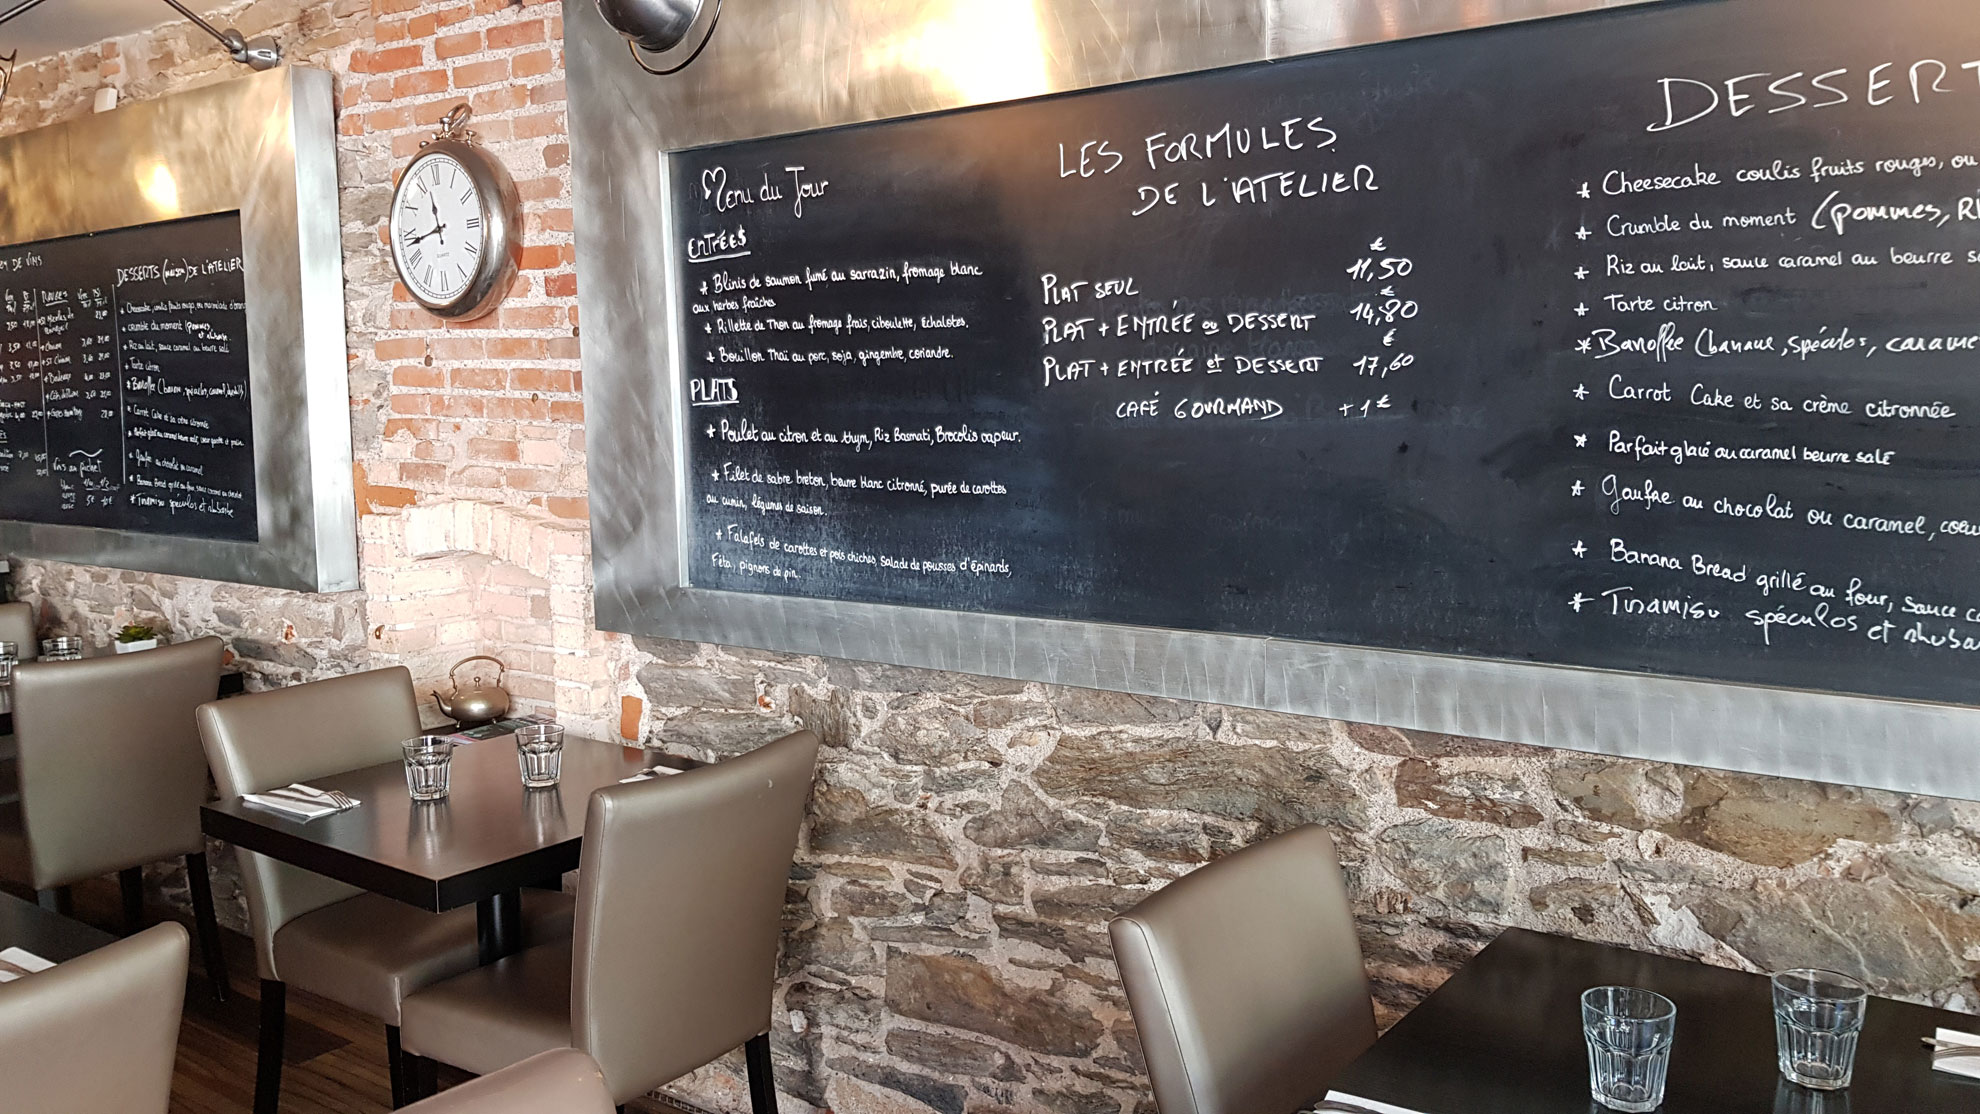 DESSERTS (maison) DE L'ATELIER
* Cheesecake, coulis fruits rouges, ou marmelade d'
* crumble du moment (pommes
et rhubarbe.
* Riz au lait, sauce caramel au beurre salé
* Tarte citron.
* Banoffee (banane, spéculos, caramel,
* Carrot Cake et sa crème citronnée
* Parfait glacé au caramel beurre salé,
* Gaufre au chocolat ou caramel
* Banana Bread grillé au four, sauce caramel ou chocolat
* Tiramisu spéculos et rhubarbe
DE VINS
ROUGES
Vins au pichet
Menu du Jour
ENTRÉES
* Blinis de saumon fumé au sarrazin, fromage blanc
aux herbes fraîches
* Rillette de Thon au fromage frais, ciboulette, Echalotes.
* Bouillon Thaï au porc, soja, gingembre, coriandre.
PLATS
* Poulet au citron et au thym, Riz Basmati, Brocolis vapeur.
* Filet de sabre breton, beurre blanc citronné, purée de carottes
au cumin, légumes de saison.
* Falafels de carottes et pois chiches, Salade de pousses d'épinards,
Féta, pignons de pin.
LES FORMULES
DE L'ATELIER
PLAT SEUL 11,50 €
PLAT + ENTRÉE ou DESSERT 14,80 €
PLAT + ENTRÉE et DESSERT 17,60 €
CAFÉ GOURMAND +1 €
DESSERT
* Cheesecake coulis fruits rouges, ou
* Crumble du moment (pommes, R
* Riz au lait, sauce caramel au beurre s
* Tarte citron
* Banoffee (banane, spéculos, carame
* Carrot Cake et sa crème citronnée
* Parfait glacé au caramel beurre salé
* Gaufre au chocolat ou caramel, coeu
* Banana Bread grillé au four, sauce ca
* Tiramisu spéculos et rhuba